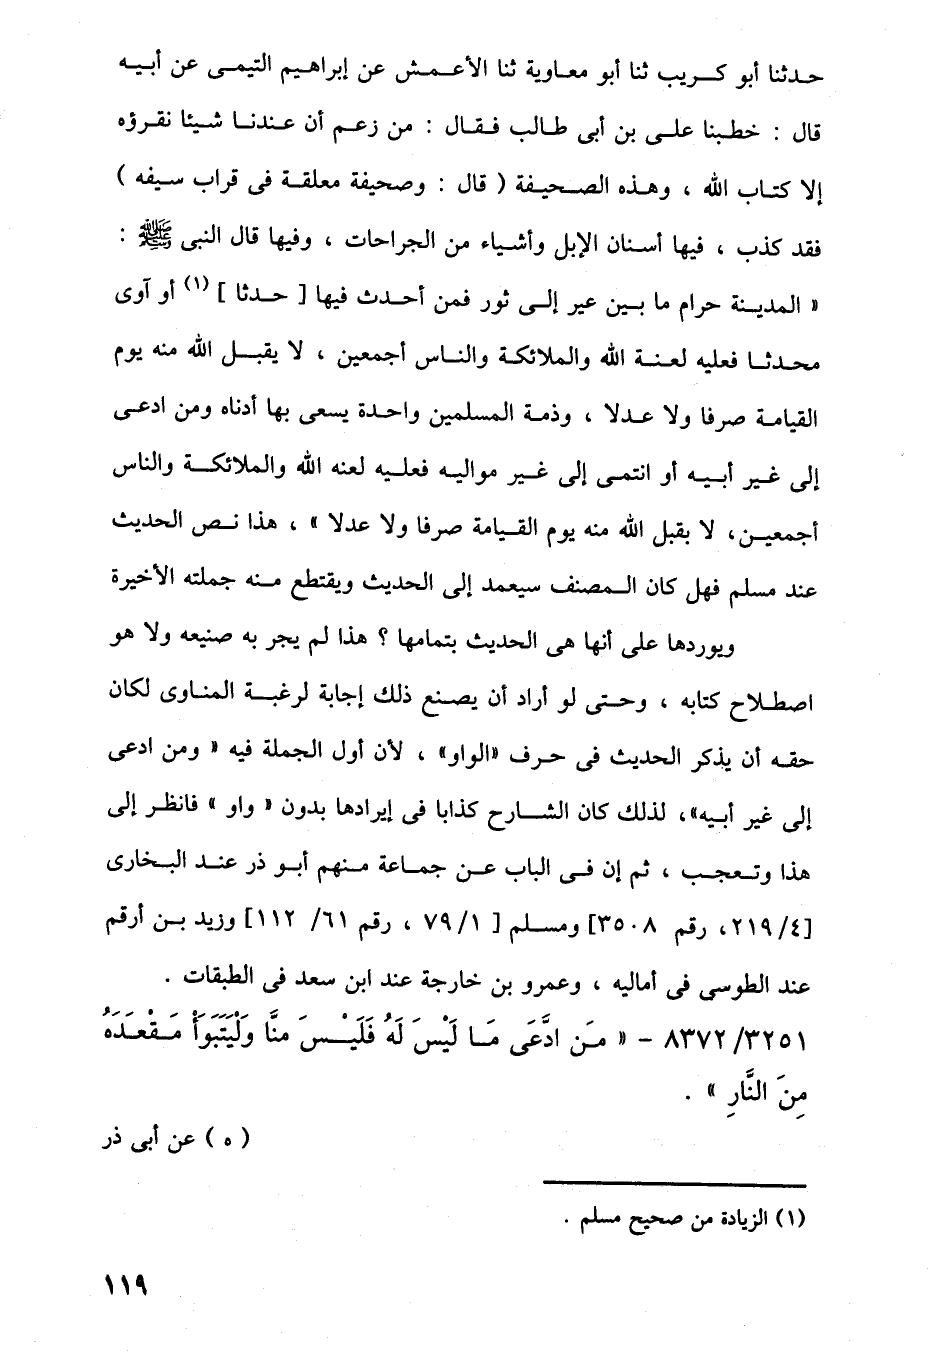 حدثنا أبو كريب ثنا أبو معاوية ثنا الأعمش عن إبراهيم التيمى عن أبيه
قال : خطبنا على بن أبى طالب فقال : من زعم أن عندنا شيئا نقرؤه
إلا كتاب الله ، وهذه الصحيفة ( قال : وصحيفة معلقة فى قراب سيفه )
فقد كذب ، فيها أسنان الإبل وأشياء من الجراحات ، وفيها قال النبى ﷺ :
« المدينة حرام ما بين عير إلى ثور فمن أحدث فيها [ حدثا ] (١) أو آوى
محدثا فعليه لعنة الله والملائكة والناس أجمعين ، لا يقبل الله منه يوم
القيامة صرفا ولا عدلا ، وذمة المسلمين واحدة يسعى بها أدناه ومن ادعى
إلى غير أبيه أو انتمى إلى غير مواليه فعليه لعنه الله والملائكة والناس
أجمعين، لا بقبل الله منه يوم القيامة صرفا ولا عدلا » ، هذا نص الحديث
عند مسلم فهل كان المصنف سيعمد إلى الحديث ويقتطع منه جملته الأخيرة
ويوردها على أنها هى الحديث بتمامها ؟ هذا لم يجر به صنيعه ولا هو
اصطلاح كتابه ، وحتى لو أراد أن يصنع ذلك إجابة لرغبة المناوى لكان
حقه أن يذكر الحديث فى حرف «الواو» ، لأن أول الجملة فيه « ومن ادعى
إلى غير أبيه»، لذلك كان الشارح كذابا فى إيرادها بدون « واو » فانظر إلى
هذا وتعجب ، ثم إن فى الباب عن جماعة منهم أبو ذر عند البخارى
[٢١٩/٤، رقم ٣٥٠٨] ومسلم [ ٧٩/١ ، رقم ٦١/ ١١٢] وزيد بن أرقم
عند الطوسى فى أماليه ، وعمرو بن خارجة عند ابن سعد فى الطبقات .
٨٣٧٢/٣٢٥١ - « مَن ادَّعَى مَا لَيْسَ لَهُ فَلَيْسَ مِنَّا وَلْيَتَبَوَأْ مَقْعَدَهُ
مِنَ النَّارِ » .
( ه ) عن أبى ذر
(١) الزيادة من صحيح مسلم .
١١٩